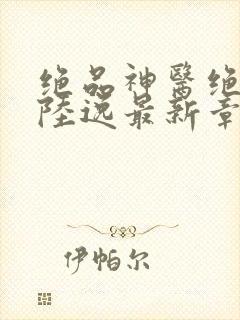 绝品神醫绝
陸逸最新章
伊帕尔